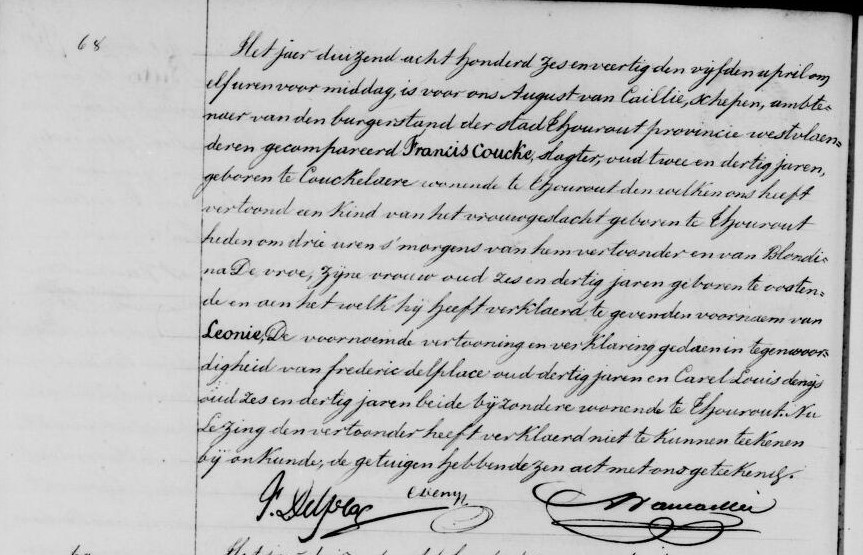 68
Het jaer duizend acht honderd zes en veertig den vyfden april om
elf uren voor middag, is voor ons August van Caillie, schepen, ambte=
naer van den burgerstand der stad Thourout provincie westvlaen=
deren gecompareerd Francis Coucke, slagter, oud twee en dertig jaren,
geboren te Couckelaere wonende te Thourout den welken ons heeft
vertoond een kind van het vrouwgeslacht geboren te Thourout
heden om drie uren s'morgens van hem vertoonder en van Blondi=
na De vroe, zyne vrouw oud zes en dertig jaren geboren te oosten=
de en aen het welk hy heeft verklaerd te geven den voornaem van
Leonie, De voornoemde vertooning en verklaring gedaen in tegenwoor=
digheid van frederic delplace oud dertig jaren en Carel Louis denys
oud zes en dertig jaren beide byzondere wonende te Thourout. Na
Lezing den vertoonder heeft verklaerd niet te kunnen teekenen
by onkunde, de getuigen hebben dezen act met ons geteekend.
F. Delplace C Denys AVancaillie